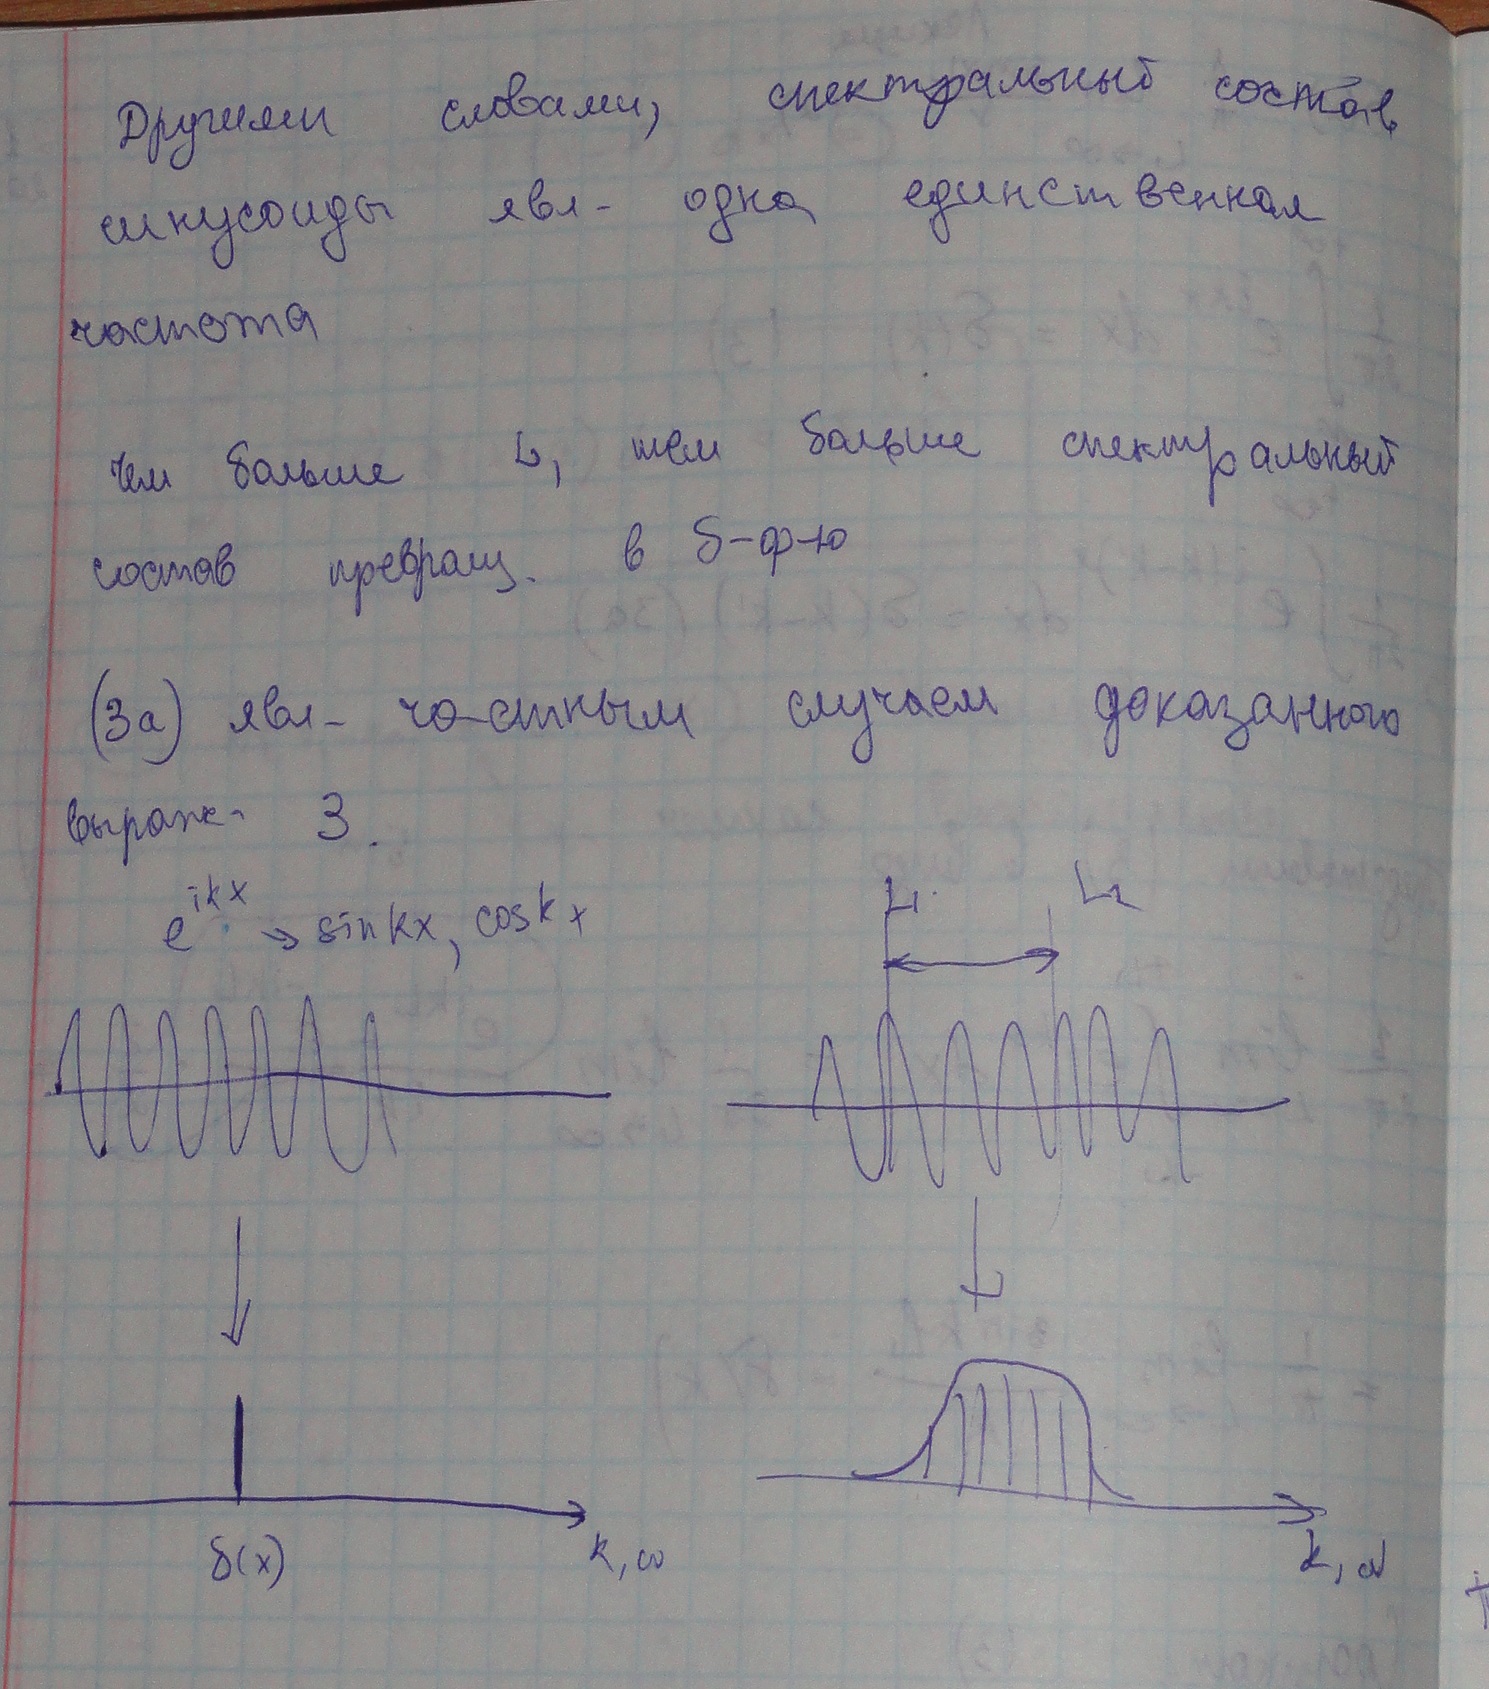 Другими словами, спектральный состав
синусоиды явл- одна единственная
частота
Чем больше L, тем больше спектральный
состав превращ. в δ-ф-ю
(3а) явл- частным случаем доказанного
выраж- 3.
e^{ikx} → sin kx, cos kx
L₁ L₂
δ(x)
k, ω
k, ω